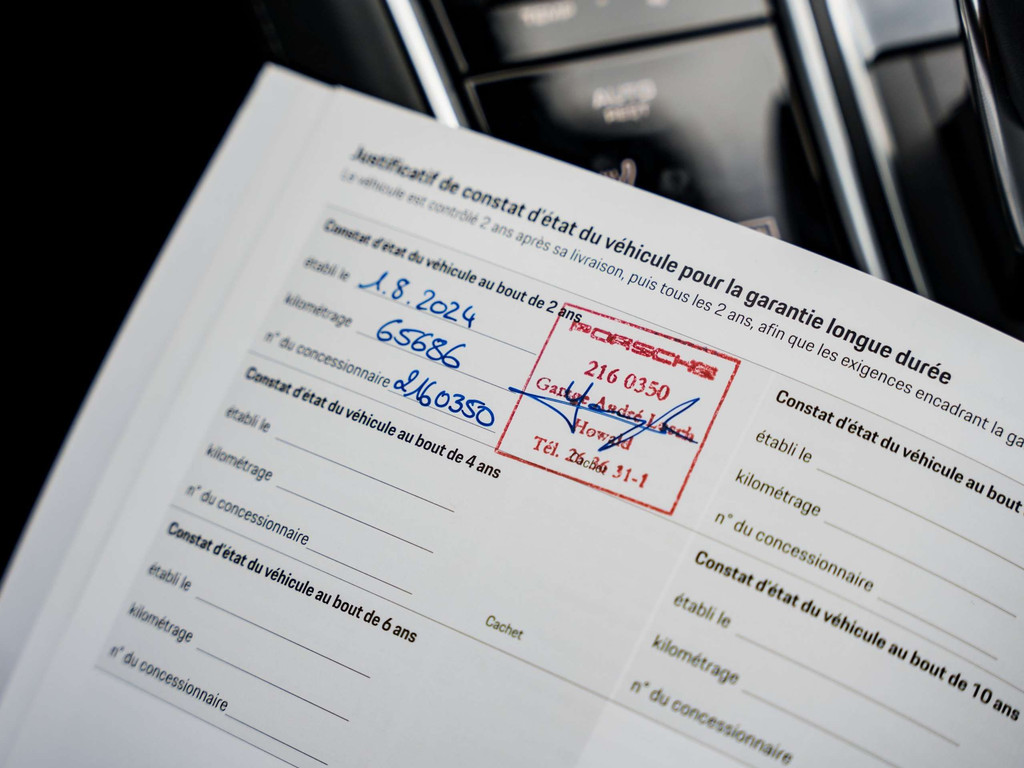 AUTO
REST
Justificatif de constat d'état du véhicule pour la garantie longue durée
Le véhicule est contrôlé 2 ans après sa livraison, puis tous les 2 ans, afin que les exigences encadrant la ga
Constat d'état du véhicule au bout de 2 ans
établi le 1.8.2024
kilométrage 65686
n° du concessionnaire 2160350
PORSCHE
216 0350
Garage André Losch
Howald
Tél. 26 36 31-1
Cachet
Constat d'état du véhicule au bout de 4 ans
établi le
kilométrage
n° du concessionnaire
Cachet
Constat d'état du véhicule au bout de 6 ans
établi le
kilométrage
n° du concessionnaire
Constat d'état du véhicule au bout
établi le
kilométrage
n° du concessionnaire
Constat d'état du véhicule au bout de 10 ans
établi le
kilométrage
n° du concessionnaire